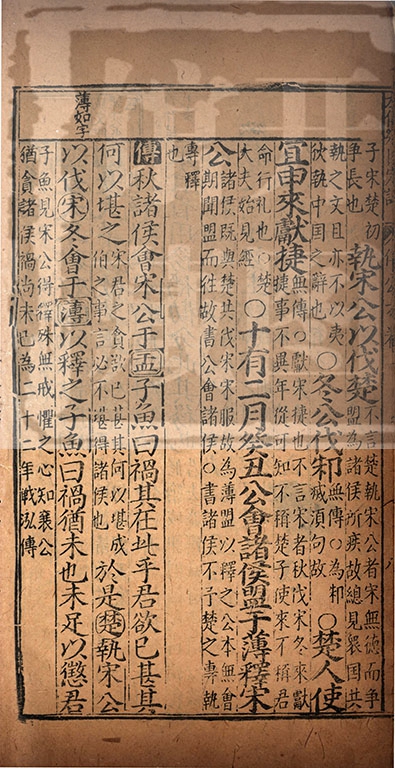 子宋楚初
爭長也
執宋公以伐楚
不言楚執宋公者宋無德而爭
盟為諸侯所疾故總見衆国共
執之文且亦不以夷
狄執中国之辭也
○冬公伐邾
無傳○為邾
滅須句故
○楚人使
宜申來獻捷
無傳○獻宋捷也不言宋者秋伐宋冬來獻
捷事不異年從可知不稱楚子使來不稱君
命行礼也○楚
大夫始見經
○十有二月癸丑公會諸侯盟于薄釋宋
公
諸侯既與楚共伐宋宋服故為薄盟以釋之公本無會
期聞盟而往故書公會諸侯○書諸侯不予楚之專執
專釋
也
傳秋諸侯會宋公于盂子魚曰禍其在此乎君欲已甚其
何以堪之
宋君之貪欲已甚其何以堪成
伯之事言必不堪得諸侯也
於是楚執宋公
薄如字
以伐宋冬會于薄以釋之子魚曰禍猶未也未足以懲君
子魚見宋公得釋殊無戒懼之心知襄公
猶貪諸侯禍尚未已為二十二年戰泓傳